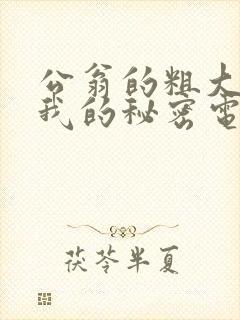 公翁的粗大
我的秘密電
茯苓半夏